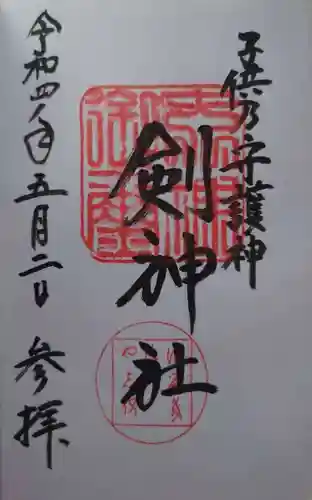 子供乃守護神
剣神社
令和四年五月二日 参拝